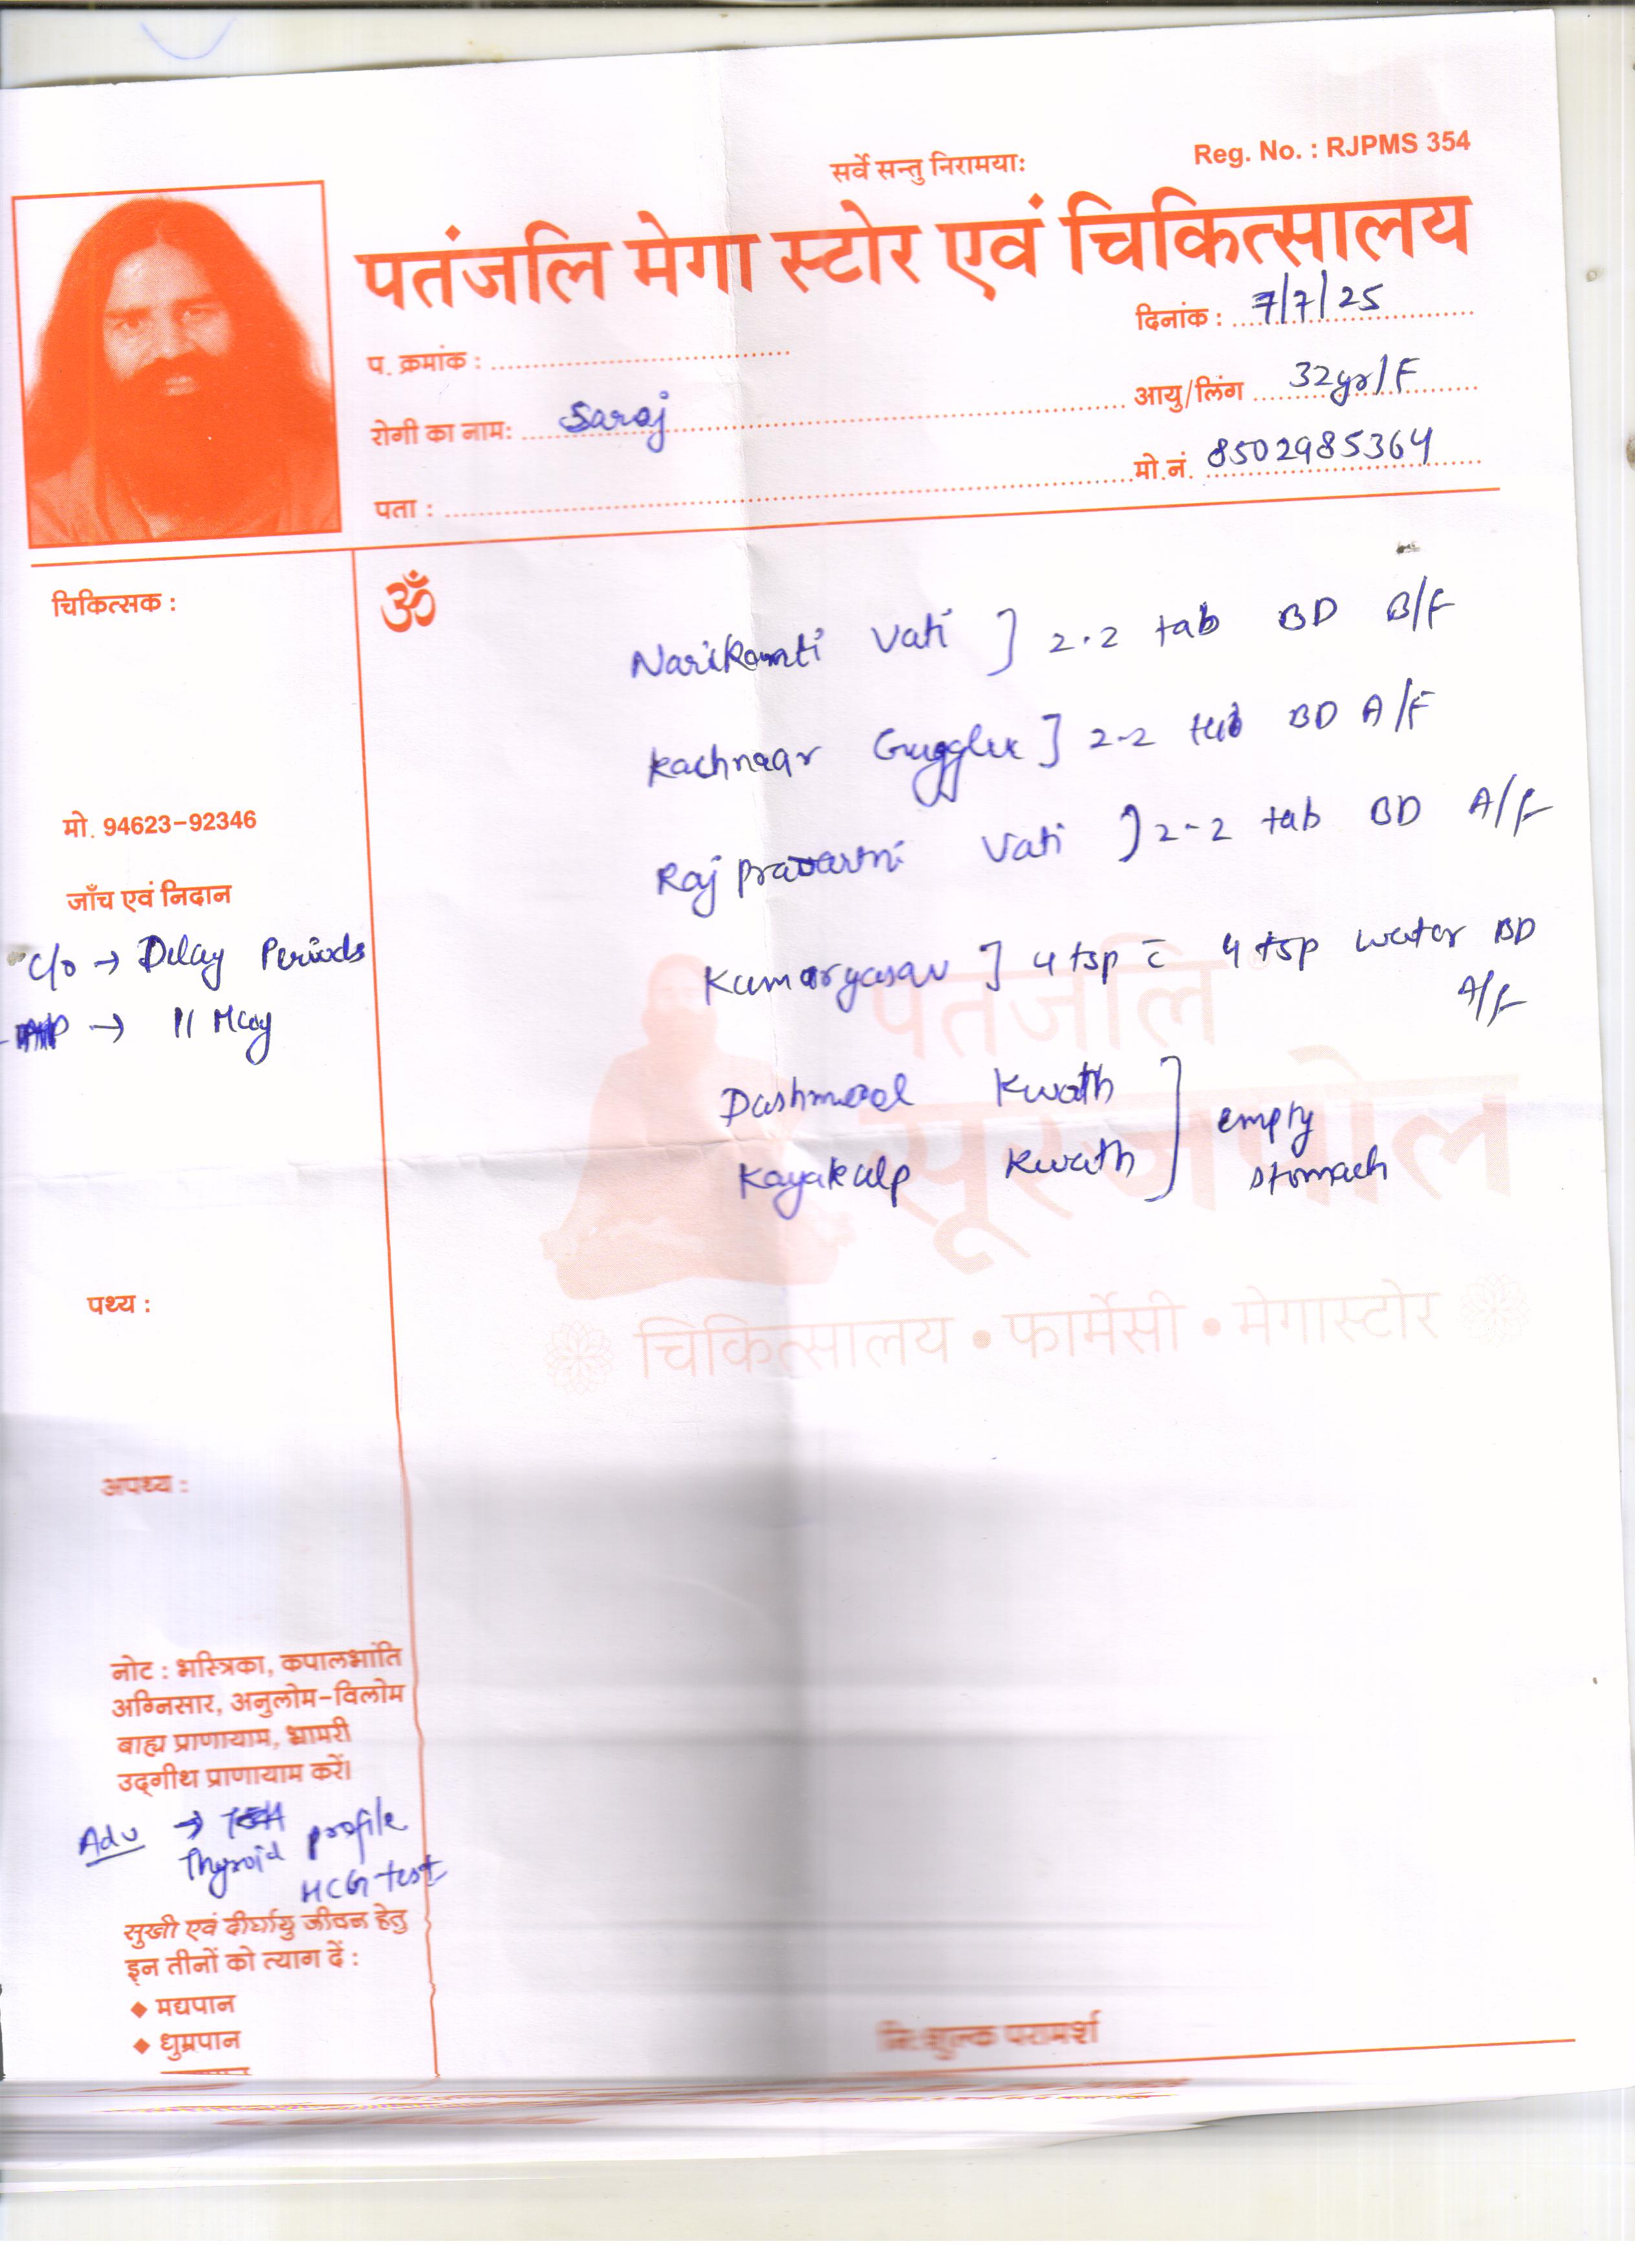 सर्वे सन्तु निरामयाः
Reg. No. : RJPMS 354
पतंजलि मेगा स्टोर एवं चिकित्सालय
दिनांक : 7/7/25
प. क्रमांक :
आयु/लिंग 32yr/F
रोगी का नाम: Saroj
मो.नं. 8502985364
पता :
चिकित्सक :
ॐ
Narikamti Vati ] 2.2 tab BD B/F
Kachnaar Gugglu ] 2-2 tab BD A/F
मो. 94623-92346
Raj pravartni Vati ] 2-2 tab BD A/F
जाँच एवं निदान
c/o → Delay Periods
→ 11 May
Kumaryasav ] 4 tsp c̅ 4 tsp water BD
A/F
Dashmool Kwath
Kayakalp Kwath ] empty
stomach
पतंजलि
सूरजपोल
चिकित्सालय • फार्मेसी • मेगास्टोर
पथ्य :
अपथ्य :
नोट : भस्त्रिका, कपालभांति
अग्निसार, अनुलोम-विलोम
बाह्य प्राणायाम, भ्रामरी
उद्‌गीथ प्राणायाम करें।
Adv →
Thyroid profile
HCG test
सुखी एवं दीर्घायु जीवन हेतु
इन तीनों को त्याग दें :
◆ मद्यपान
◆ धुम्रपान
नि:शुल्क परामर्श